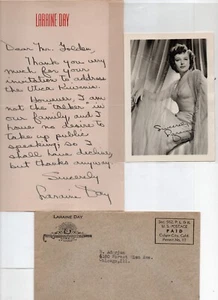 LARAINE DAY
Dear Mr. Golden,
Thank you very
much for your
invitation to address
the Utica Kiwanis.
However, I am
not the "talker" in
our family and I
have no desire to
take up public
speaking so I
shall have decline
but thanks anyway
Sincerely
Laraine Day
Sincerely
LARAINE DAY
Sec. 562, P. L. & R.
U. S. POSTAGE
PAID
Culver City, Cal.
Permit No.